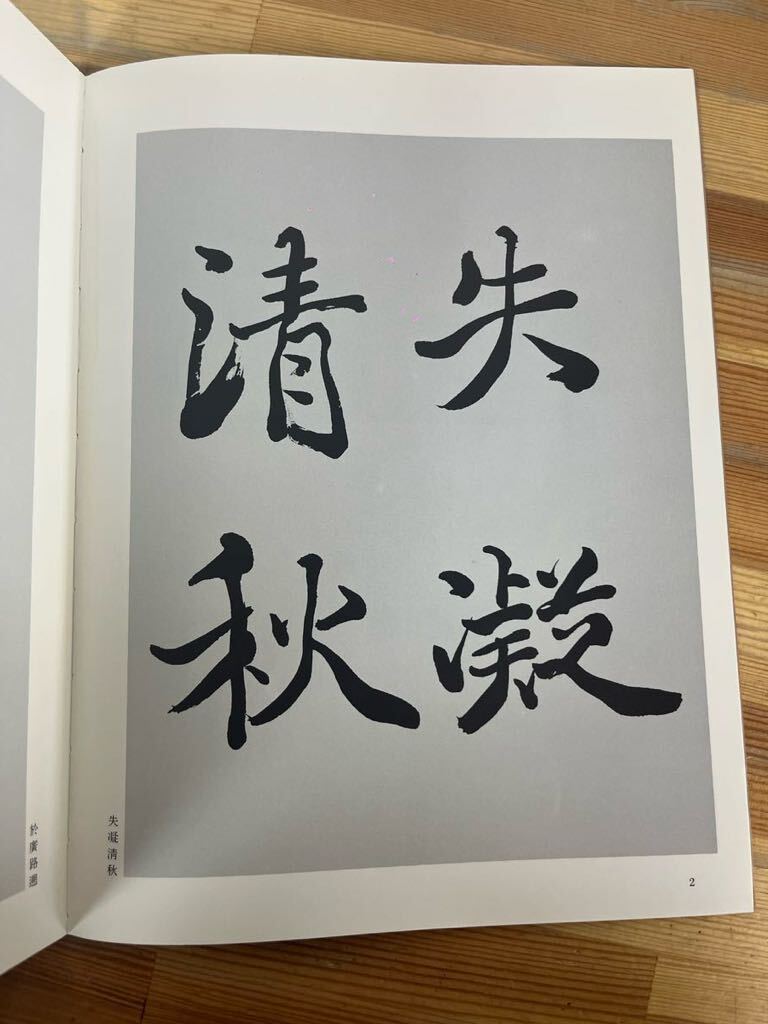 失凝
清秋
失凝清秋
於廣路遡
2